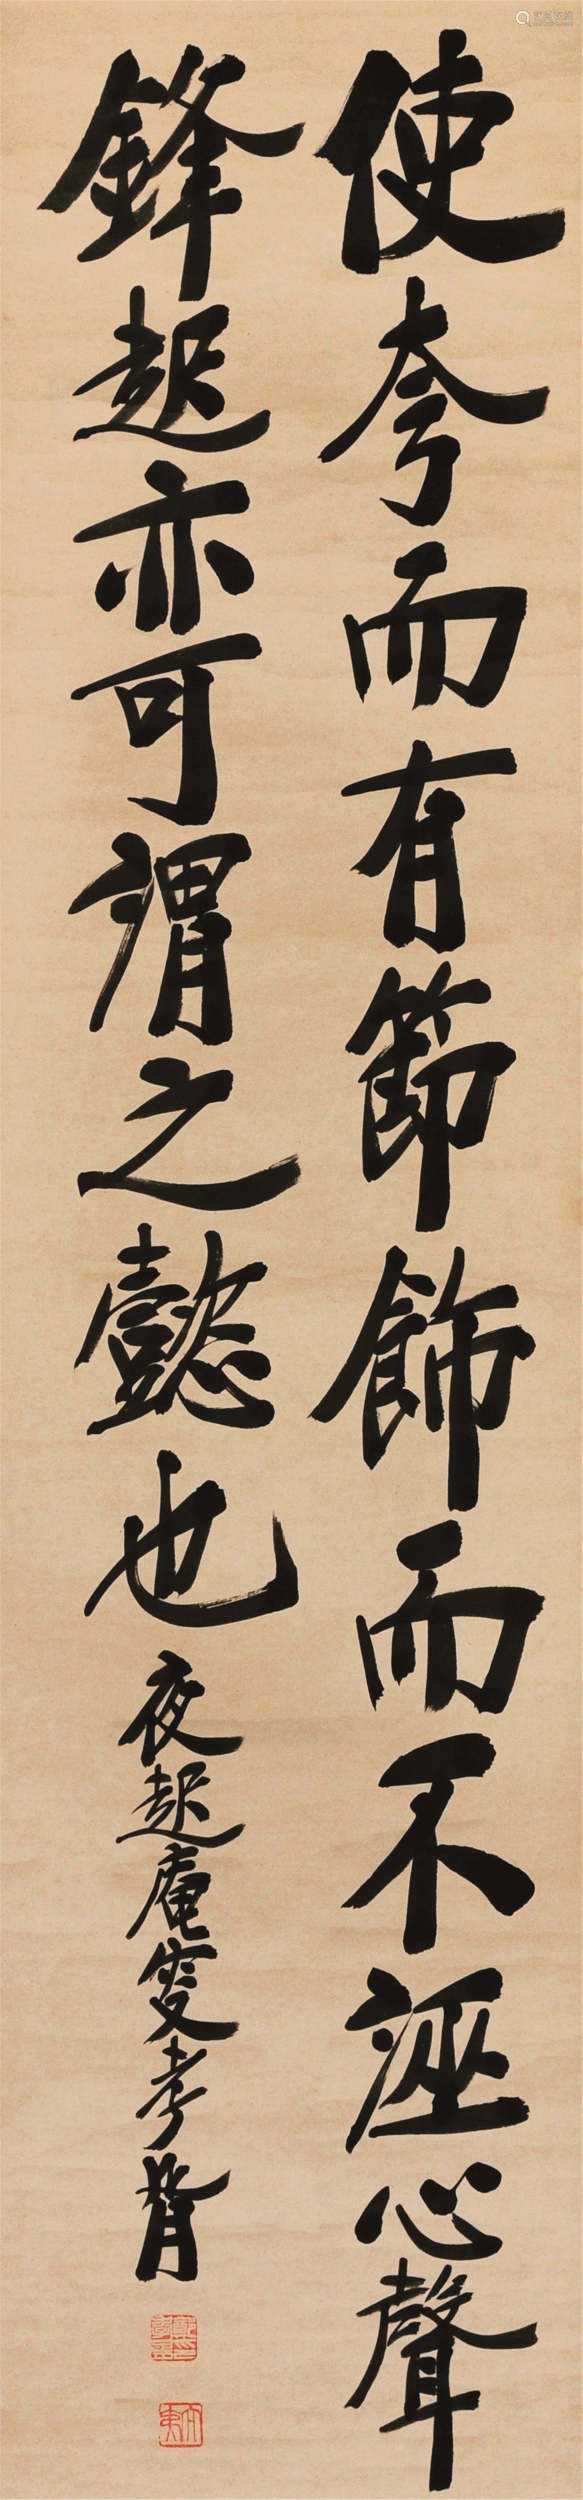 使夸而有節飾而不誣心聲
鋒起亦可謂之懿也
夜起庵叟孝胥